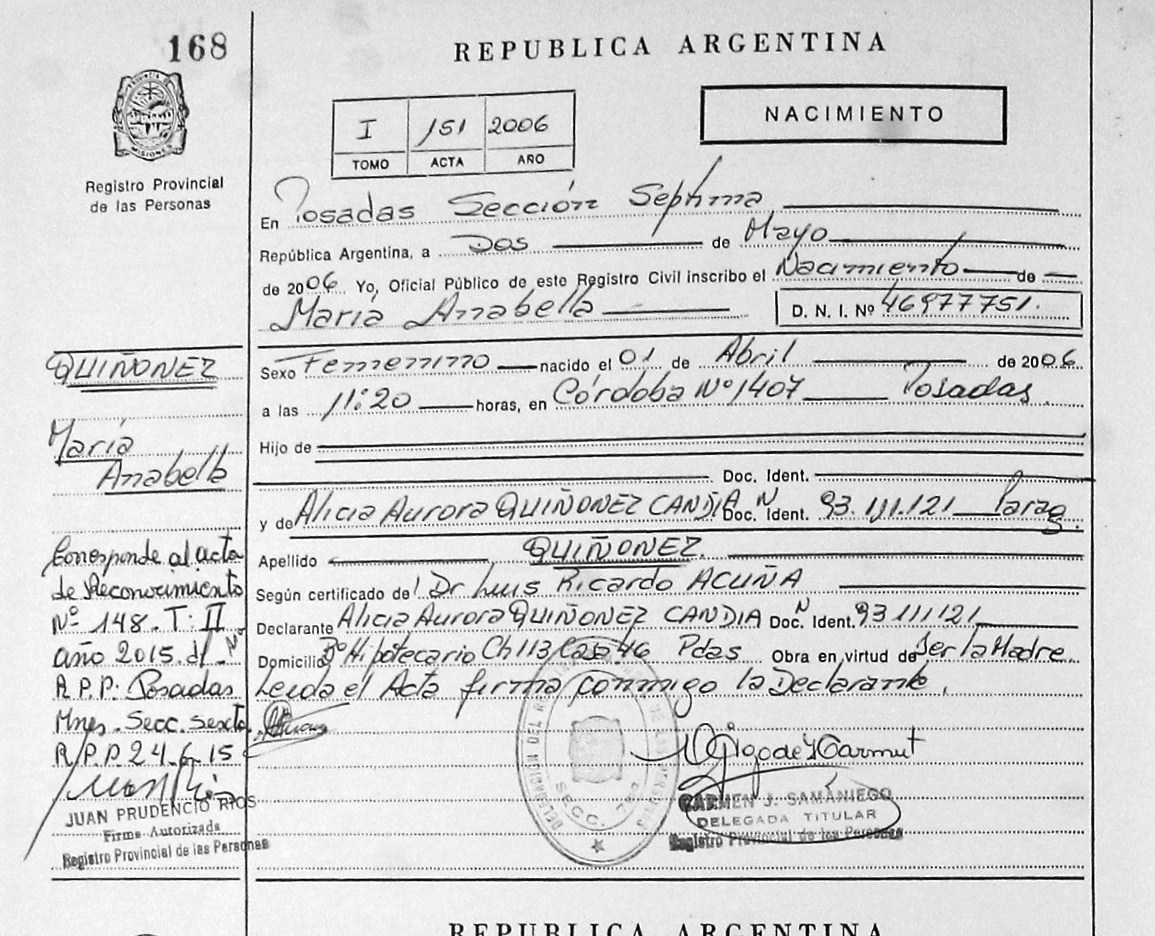 168
REPUBLICA ARGENTINA
PROVINCIA DE MISIONES
Registro Provincial
de las Personas
I 151 2006
TOMO ACTA AÑO
NACIMIENTO
En Posadas Sección Septima
República Argentina, a Dos de Mayo
de 2006 Yo, Oficial Público de este Registro Civil inscribo el Nacimiento de
María Anabella D. N. I. Nº 46977751.
QUIÑONEZ
María
Anabella
Sexo Femenino nacido el 01 de Abril de 2006
a las 11:20 horas, en Córdoba Nº 1407 Posadas.
Hijo de
Doc. Ident.
y de Alicia Aurora QUIÑONEZ CANDIA Doc. Ident. Nº 93.111.121 Parag.
Apellido QUIÑONEZ.
Según certificado del Dr Luis Ricardo ACUÑA
Declarante Alicia Aurora QUIÑONEZ CANDIA Doc. Ident. Nº 93111121
Domicilio Bº Hipotecario Ch 113 Casa 46 Pdas Obra en virtud de Ser la Madre.
Leida el Acta firma conmigo la Declarante.
Corresponde al acta
de Reconocimiento
Nº 148. T. II
año 2015.
R.P.P. Posadas
Mnes. Secc. Sexta
R.P.P. 24.6.15
JUAN PRUDENCIO RIOS
Firma Autorizada
Registro Provincial de las Personas
DELEGACION DEL SECC. 7ma
CARMEN J. SAMANIEGO
DELEGADA TITULAR
Registro Provincial de las Personas
REPUBLICA ARGENTINA